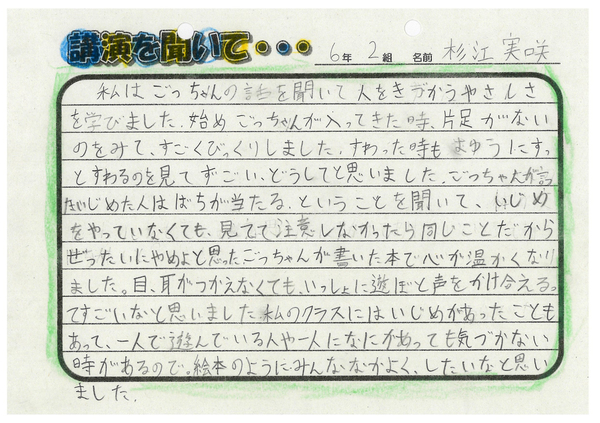 講演を聞いて・・・
6年 2組 名前 杉江 実咲
私はごっちゃんの話を聞いて人をきづかうやさしさ
を学びました。始めごっちゃんが入ってきた時、片足がない
のをみて、すごくびっくりしました。すわった時も ゆうにすっ
とすわるのを見てすごい、どうしてと思いました。ごっちゃんが言っ
たいじめた人はばちが当たる。ということを聞いて、いじめ
をやっていなくても、見てて注意しなかったら同じことだから
ぜったいにやめよと思ったごっちゃんが書いた本で心が温かくなり
ました。目、耳がつかえなくても、いっしょに遊ぼと声をかけ合えるっ
てすごいなと思いました。私のクラスにはいじめがあったことも
あって、一人で遊んでいる人や一人になにかあっても気づかない
時があるので。絵本のようにみんななかよく、したいなと思い
ました。